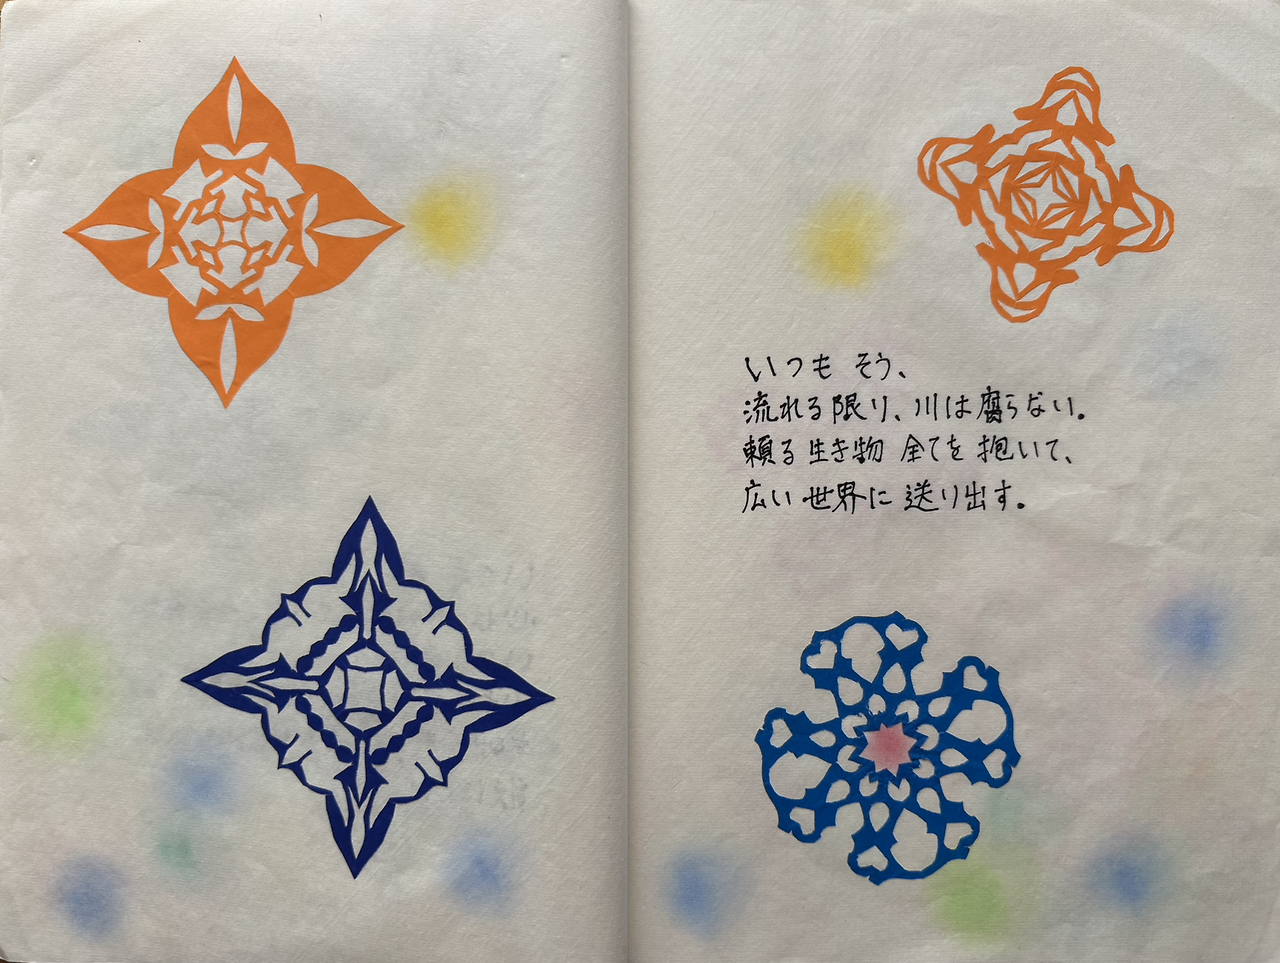 いつも そう、
流れる限り、川は腐らない。
頼る生き物 全てを 抱いて、
広い 世界に 送り出す。